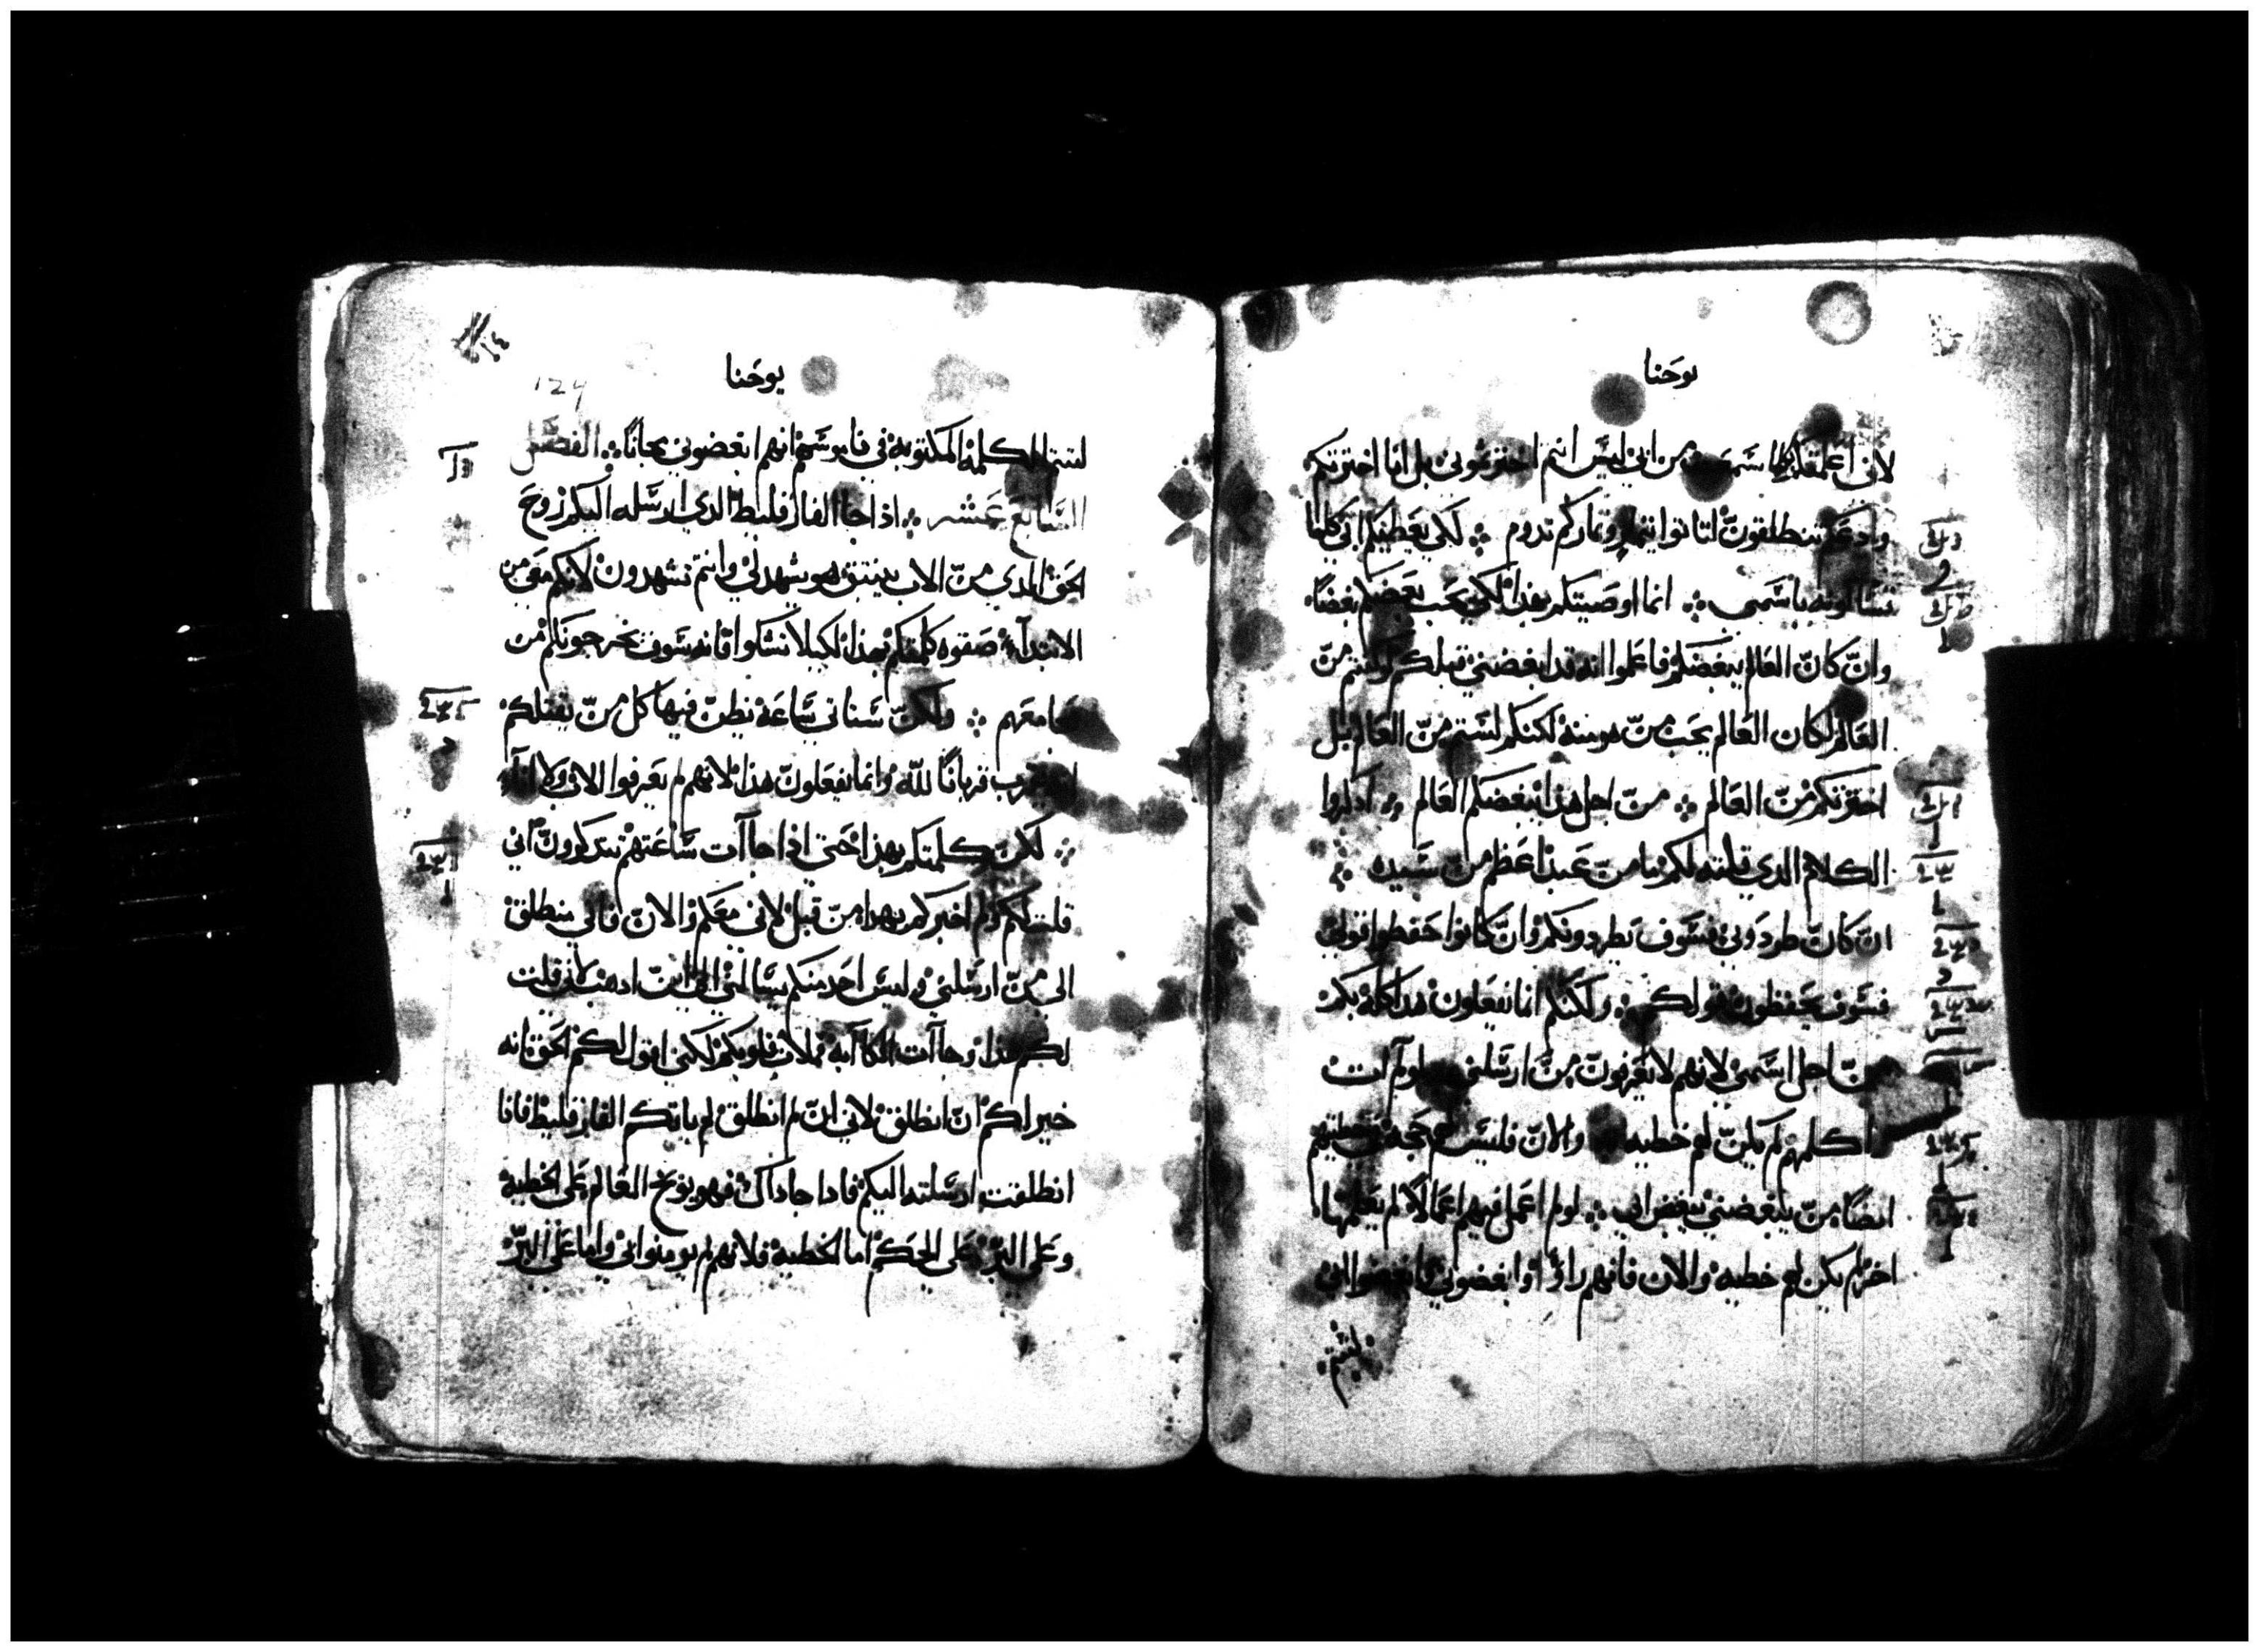 يوحنا
لاني اعلمتكم كلما سمعت من ابي ليس انتم اخترتموني بل انا اخترتكم
وادعكم تنطلقون لتاتوا بثمار وثماركم تدوم ۞ لكي يعطيكم ابي كلما
تسالونه باسمي ۞ انما اوصيتكم بهذا لكي يحب بعضكم بعضا
وان كان العالم يبغضكم فاعلموا انه قد ابغضني قبلكم لو كنتم من
العالم لكان العالم يحب من هو منه لكنكم لستم من العالم بل
اخترتكم من العالم ۞ من اجل هذا يبغضكم العالم ۞ اذكروا
الكلام الدي قلته لكم ما من عبد اعظم من سيده ۞
ان كان طردوني فسوف يطردونكم وان كانوا حفظوا قولي
فسوف يحفظون قولكم ۞ ولكنكم انما يفعلون هدا كله بكم
من اجل اسمي لانهم لا يعرفون من ارسلني لو لم ات
اكلمهم لم يكن لهم خطيه والان فليس لهم حجه في خطيتهم
ايضا من يبغضني يبغض ابي ۞ لو لم اعمل فيهم اعمالا لم يعملها
اخر لم يكن لهم خطيه والان فانهم راوا وابغضوني وابغضوا ابي
لتتم
يوحنا
124
لتتم الكلمه المكتوبه في ناموسهم انهم ابغضوني مجانا ۞ الفصل
السابع عشر ۞ اذا جا الفارقليط الدي ارسله اليكم روح
الحق الدي من الاب ينبتق هو يشهد لي وانتم تشهدون لانكم معي من
الابتداء صفوه كلمتكم بهذا لكيلا تشكوا فانه سوف يخرجونكم من
مجامعهم ۞ ولكن ستاتي ساعه يظن فيها كل من يقتلكم
انه يقرب قربانا لله وانما يفعلون هذا لانهم لم يعرفوا الاب ولا انا
۞ لكن كلمتكم بهذا حتى اذا جاات ساعتهم تتذكرون اني
قلت لكم ولم اخبركم بهدا من قبل لاني معكم والان فاني منطلق
الى من ارسلني وليس احد منكم يسالني الى اين اذهب لاني قلت
لكم هذا وجاات الكاابه فملات قلوبكم لكني اقول لكم الحق انه
خير لكم ان انطلق لاني ان لم انطلق لم ياتكم الفارقليط فانا
انطلقت ارسلته اليكم فادا جا داك فهو يوبخ العالم على الخطيه
وعلى البر وعلى الحكم اما الخطيه فلانهم لم يومنوا بي واما على البر